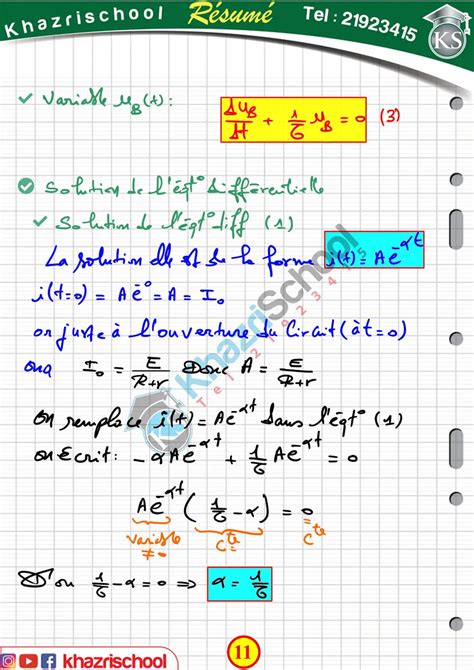 Khazrischool
Résumé
Tel : 21923415
KS
✓ Variable u_B(t) :
du_B/dt + 1/τ u_B = 0 (3)
✓ Solution de l'éqt° différentielle
✓ Solution de l'éqt° diff (1)
La solution elle est de la forme i(t) = Ae^-αt
i(t=0) = Ae^-0 = A = I₀
or juste à l'ouverture du circuit (à t=0)
ona I₀ = E/(R+r) Donc A = E/(R+r)
On remplace i(t) = Ae^-αt dans l'éqt° (1)
on écrit : -αAe^-αt + 1/τ Ae^-αt = 0
Ae^-αt (1/τ - α) = 0
variable ≠ 0
cte
cte
D'ou 1/τ - α = 0 ⇒ α = 1/τ
KhazriSchool
Tel 21923415
khazrischool
11